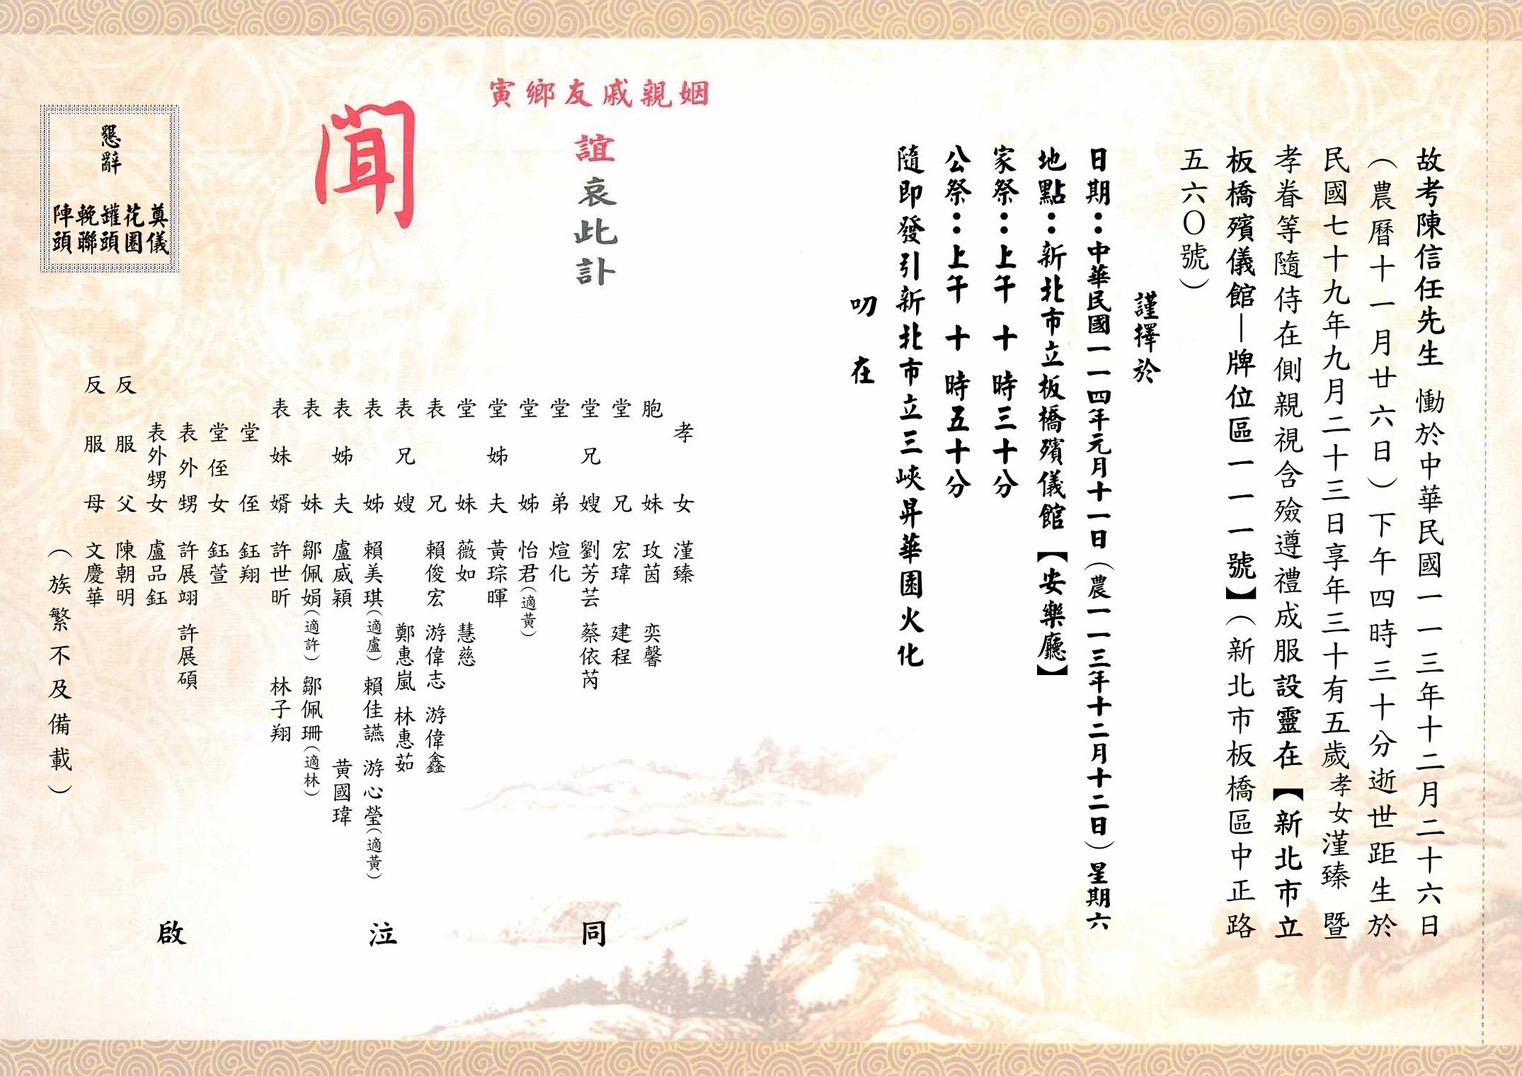 故考陳信任先生 慟於中華民國一一三年十二月二十六日
（農曆十一月廿六日）下午四時三十分逝世距生於
民國七十九年九月二十三日享年三十有五歲孝女漌臻 暨
孝眷等隨侍在側親視含殮遵禮成服設靈在【新北市立
板橋殯儀館—牌位區一一一號】（新北市板橋區中正路
五六〇號）
謹擇於
日期：中華民國一一四年元月十一日（農一一三年十二月十二日）星期六
地點：新北市立板橋殯儀館【安樂廳】
家祭：上午 十 時三十分
公祭：上午 十 時五十分
隨即發引新北市立三峽昇華園火化
叨 在
姻親戚友鄉寅
誼哀此訃
聞
孝女 漌臻
胞妹 玫茵 奕馨
堂兄 宏瑋 建程
堂兄嫂 劉芳芸 蔡依芮
堂弟 煊化
堂姊 怡君（適黃）
堂姊夫 黃琮暉
堂妹 薇如 慧慈
表兄 賴俊宏 游偉志 游偉鑫
表兄嫂 鄭惠嵐 林惠茹
表姊 賴美琪（適盧） 賴佳讌 游心瑩（適黃）
表姊夫 盧威穎 黃國瑋
表妹 鄒佩娟（適許） 鄒佩珊（適林）
表妹婿 許世昕 林子翔
堂侄 鈺翔
堂侄女 鈺萱
表外甥 許展翊 許展碩
表外甥女 盧品鈺
反服父 陳朝明
反服母 文慶華
（族繁不及備載）
同 泣 啟
懇辭
奠儀
花圈
罐頭
輓聯
陣頭